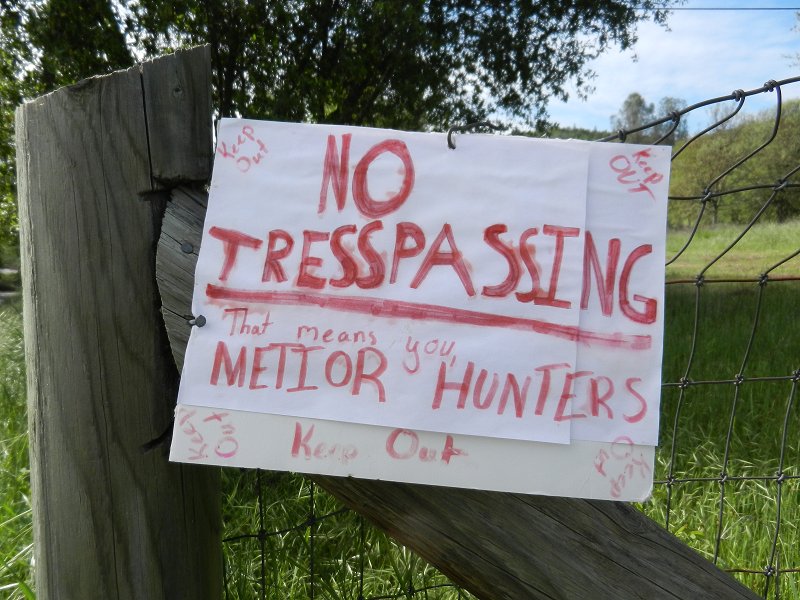 Keep
Out
Keep
OUT
NO
TRESSPASSING
That means you,
METIOR HUNTERS
Keep
Out
Keep Out
Keep
Out